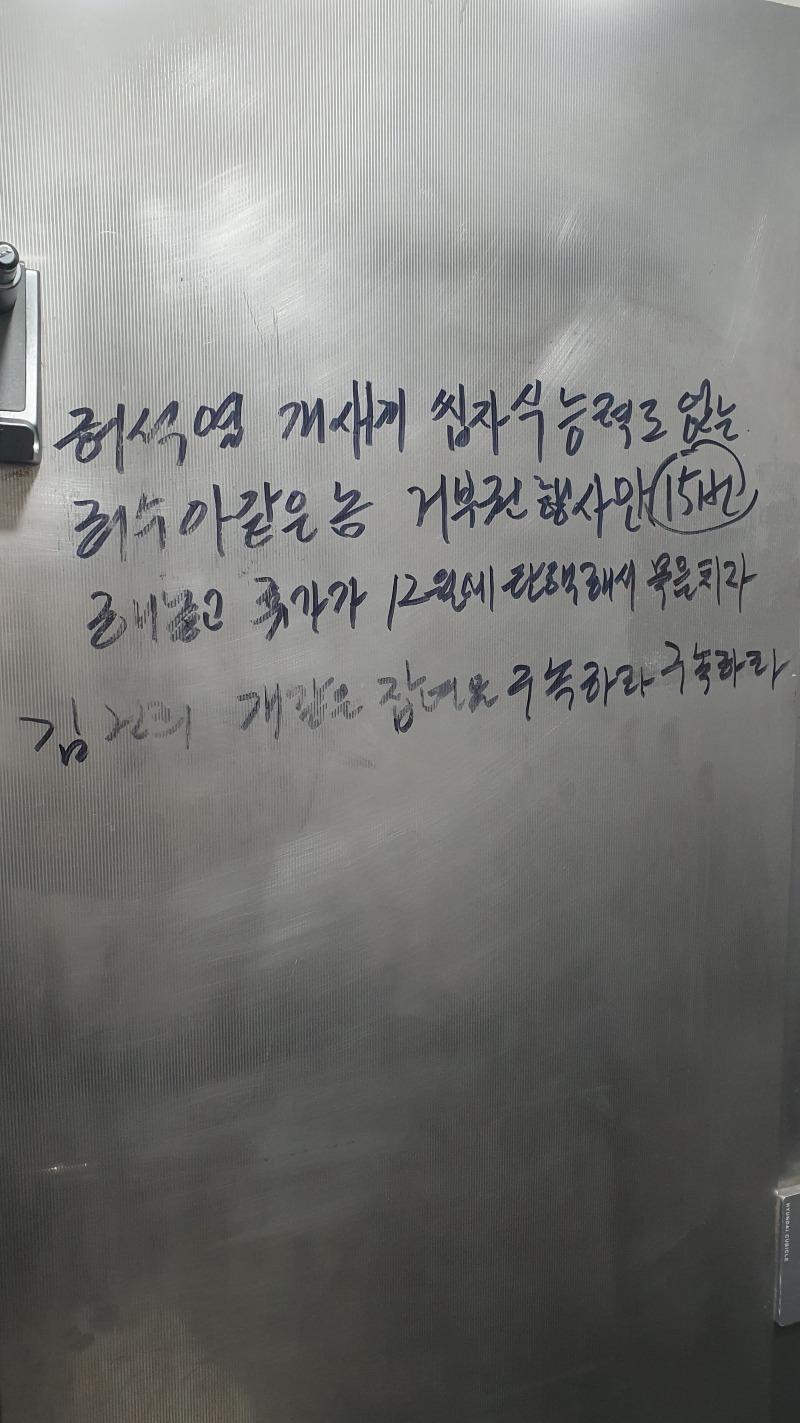 허석열 개새끼 씹자식 능력도 없는
허수아 같은 놈 거부권 행사만 15번
해놓고 휴가가 12월에 탄핵해서 목을치자
김건희 개같은 잡녀요 구속하라 구속하라
HYUNDAI CUBICLE